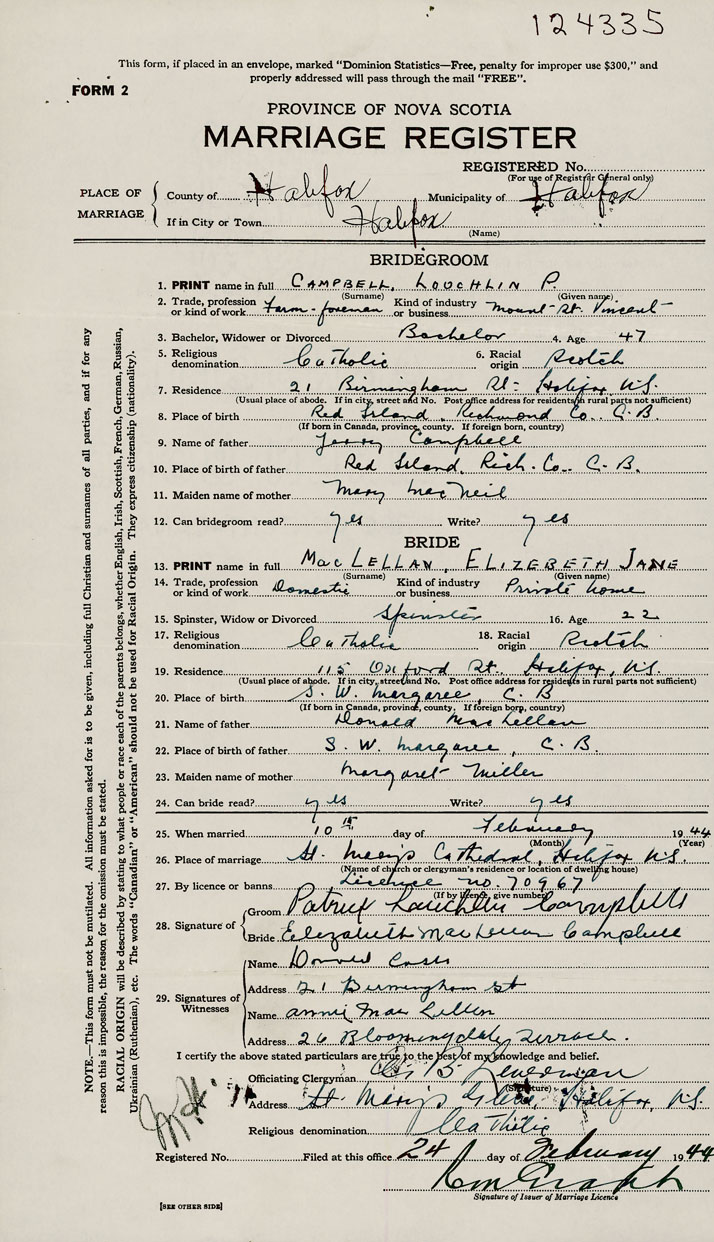 124335
This form, if placed in an envelope, marked "Dominion Statistics—Free, penalty for improper use $300," and
properly addressed will pass through the mail "FREE".
FORM 2
PROVINCE OF NOVA SCOTIA
MARRIAGE REGISTER
REGISTERED No.
(For use of Registrar General only)
PLACE OF MARRIAGE
County of Halifax Municipality of Halifax
If in City or Town Halifax
(Name)
BRIDEGROOM
1. PRINT name in full CAMPBELL, LOUCHLIN P.
(Surname) (Given name)
2. Trade, profession or kind of work Farm-foreman Kind of industry or business Mount-St. Vincent
3. Bachelor, Widower or Divorced Bachelor 4. Age 47
5. Religious denomination Catholic 6. Racial origin Scotch
7. Residence 21 Birmingham St- Halifax, N.S.
(Usual place of abode. If in city, street and No. Post office address for residents in rural parts not sufficient)
8. Place of birth Red Island, Richmond Co. C.B
(If born in Canada, province, county. If foreign born, country)
9. Name of father Jerry Campbell
10. Place of birth of father Red Island, Rich. Co. C.B.
11. Maiden name of mother Mary MacNeil
12. Can bridegroom read? yes Write? yes
BRIDE
13. PRINT name in full MacLELLAN, ELIZEBETH JANE
(Surname) (Given name)
14. Trade, profession or kind of work Domestic Kind of industry or business Private home
15. Spinster, Widow or Divorced Spinster 16. Age 22
17. Religious denomination Catholic 18. Racial origin Scotch
19. Residence 115 Oxford St. Halifax, N.S.
(Usual place of abode. If in city, street and No. Post office address for residents in rural parts not sufficient)
20. Place of birth S. W. Margaree, C. B
(If born in Canada, province, county. If foreign born, country)
21. Name of father Donald MacLellan
22. Place of birth of father S. W. Margaree, C. B.
23. Maiden name of mother Margaret Miller
24. Can bride read? yes Write? yes
25. When married 10th day of February 1944
(Month) (Year)
26. Place of marriage St. Mary's Cathedral, Halifax N.S.
(Name of church or clergyman's residence or location of dwelling house)
27. By licence or banns Licence no. 70967
(If by licence, give number)
28. Signature of Groom Patrick Lauchlin Campbell
Bride Elizabeth MacLellan Campbell
29. Signatures of Witnesses
Name Donald
Address 21 Birmingham St
Name Annie MacLellan
Address 26 Bloomingdale Terrace.
I certify the above stated particulars are true to the best of my knowledge and belief.
Officiating Clergyman
(Signature)
Address St. Mary's Glebe, Halifax, N.S.
Religious denomination Catholic
Registered No. Filed at this office 24 day of February 1944
Signature of Issuer of Marriage Licence
[SEE OTHER SIDE]
NOTE.—This form must not be mutilated. All information asked for is to be given, including full Christian and surnames of all parties, and if for any
reason this is impossible, the reason for the omission must be stated.
RACIAL ORIGIN will be described by stating to what people or race each of the parents belongs, whether English, Irish, Scottish, French, German, Russian,
Ukrainian (Ruthenian), etc. The words "Canadian" or "American" should not be used for Racial Origin. They express citizenship (nationality).